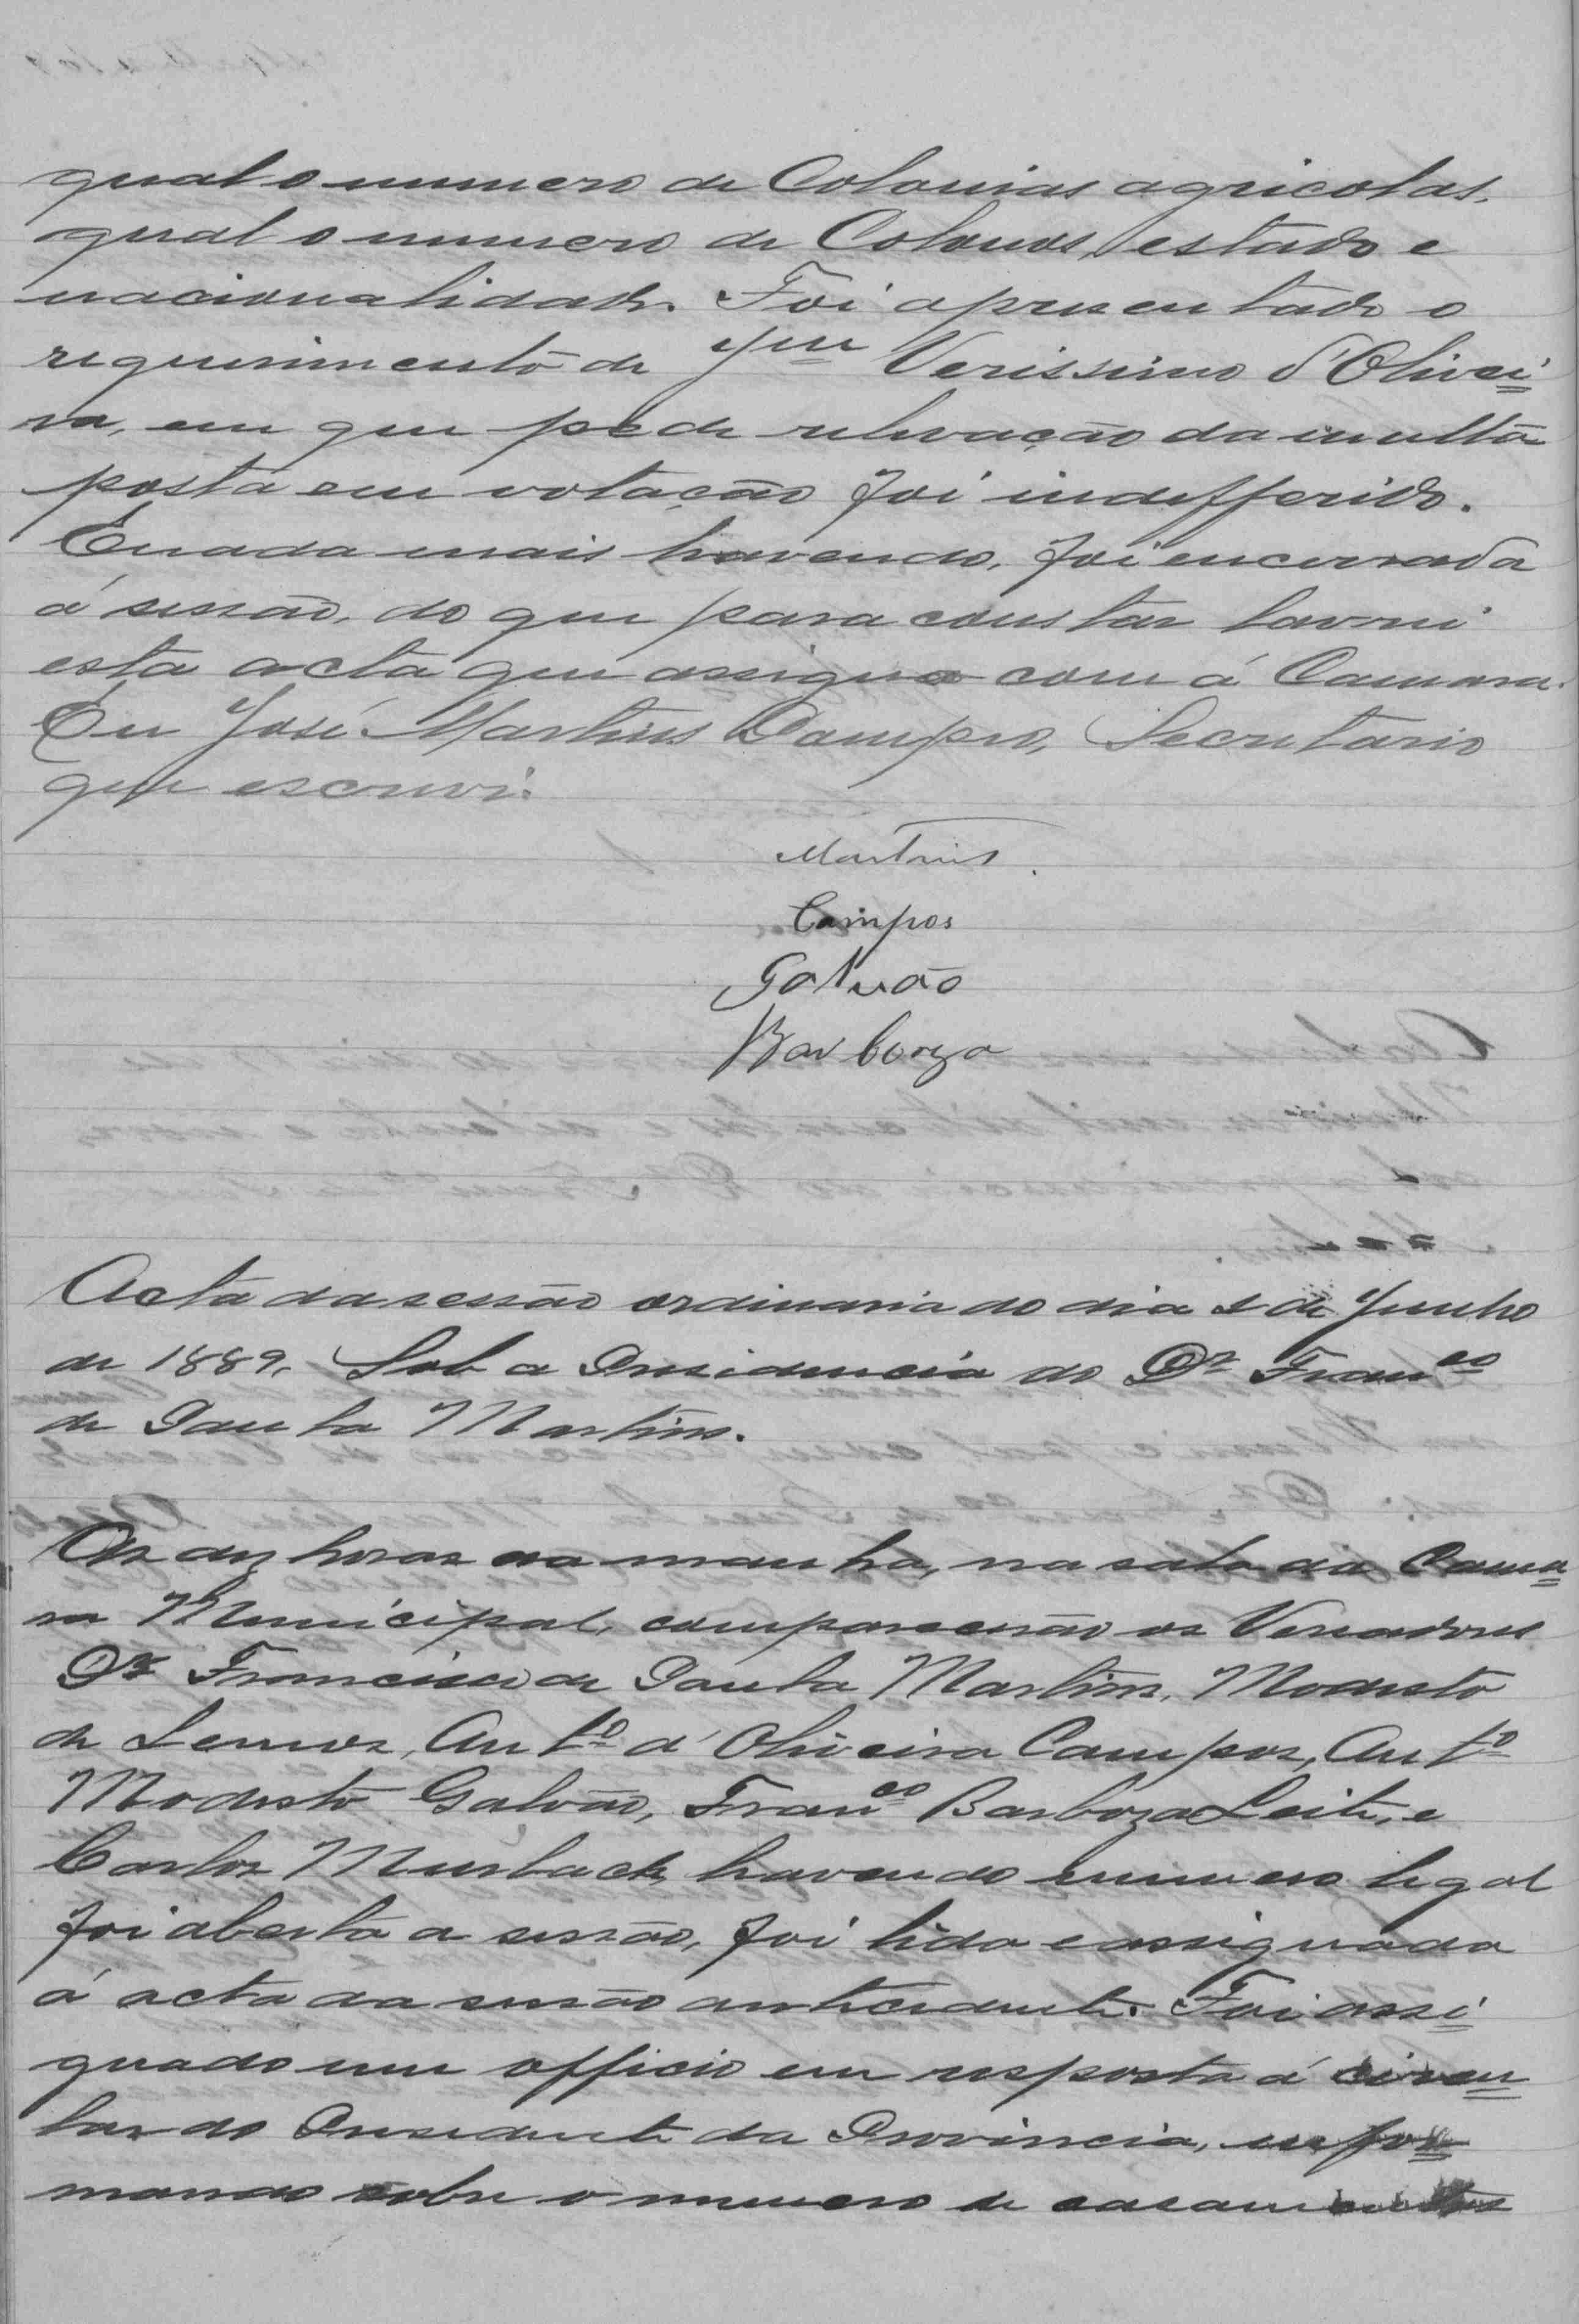 qual o numero de Colonias agricolas,
qual o numero de Colonos, estado e
nacionalidade. Foi apresentado o
requerimento de Jm Verissimo d'Olivei=
ra, em que pede relevação da multa
posta em votação foi indefferido.
E nada mais havendo, foi encerrada
á sessão, do que para constar lavrei
esta acta que assigno com á Camara.
Eu José Martins, Secretario
que escrevi.
Martins
Campos
Galvão
Barboza
Acta da sessão ordinaria do dia de Junho
de 1889. Sob a Presidencia do Dr Franco
de Paula Martins.
As dez horas da manha, na sala da Cama=
ra Municipal, comparecerão os Vereadores
Dr Francisco de Paula Martins, Modesto
de Lemos, Anto d'Oliveira Campos, Anto
Modesto Galvão, Franco Barboza Leite, e
Carlos havendo numero legal
foi aberta a sessão, foi lida e assignada
á acta da sessão antecedente. Foi assi=
gnado um officio em resposta á circu=
lar do Presidente da Provincia, infor=
mando sobre o numero de casamentos